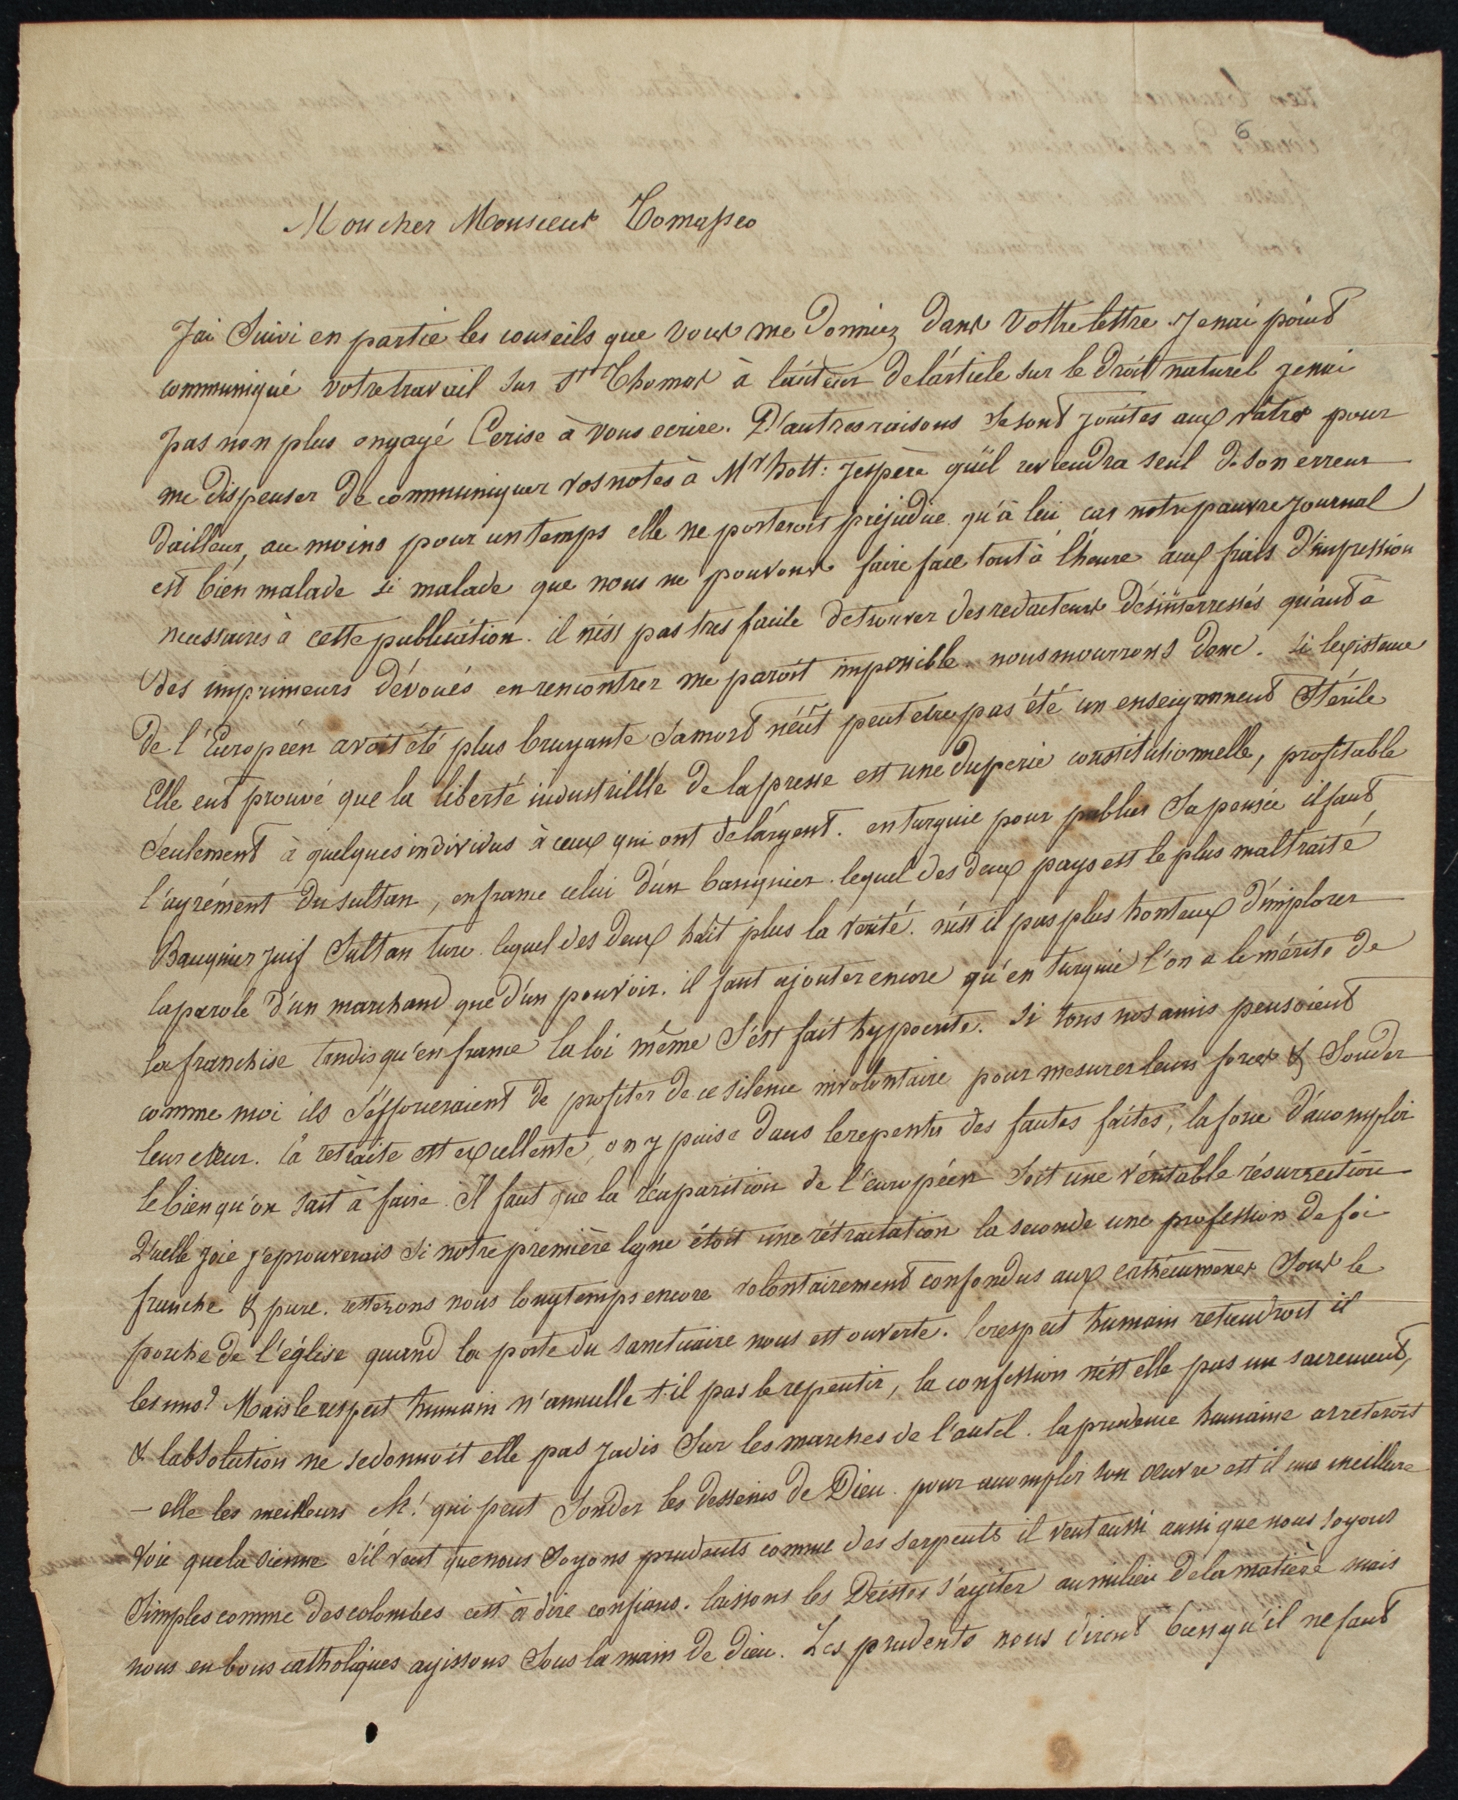 Mon cher Monsieur Tomaseo
J'ai suivi en partie les conseils que vous me donniez dans vottre lettre. Je n'ai point
communiqué votre travail sur St Thomas à l'auteur de l'article sur le droit naturel je n'ai
pas non plus engagé Cerise à vous ecrire. D'autres raisons se sont jointes aux vôtres pour
me dispenser de communiquer vos notes à Mr hott: j'espère qu'il reviendra seul de son erreur
d'ailleur, au moins pour un temps elle ne porteroit préjudice qu'à lui car notre pauvre journal
est bien malade si malade que nous ne pouvons faire face tout à l'heure aux frais d'impression
necessaires à cette publication. il n'est pas tres facile de trouver des redacteurs désinterressés quant a
des imprimeurs dévoués en rencontrer me paroit impossible nous mourrons donc. si l'existence
de l'Européen avoit été plus bruyante sa mort n'eut peut etre pas été un enseignement stérile
Elle eut prouvé que la liberté industrillle de la presse est une duperie constitutionnelle, profitable
seulement à quelques individus à ceux qui ont de l'argent. en turquie pour publier sa pensée il faut
l'agrément du sultan, en france celui d'un banquier. lequel des deux pays est le plus maltraité
Banquier juif Sultan turc lequel des deux hait plus la verité. n'est il pas plus honteux d'implorer
la parole d'un marchand que d'un pouvoir. il faut ajouter encore qu'en turquie l'on a le mérite de
la franchise tandis qu'en france la loi même s'est fait hypocrite. si tous nos amis pensoient
comme moi ils s'efforceraient de profiter de ce silence involontaire pour mesurer leurs forces & sonder
leur cœur. la retraite est excellente, on y puise dans le repentir des fautes faites, la force d'accomplir
le bien qu'on sait à faire. Il faut que la réaparition de l'européen soit une véritable résurrection
Quelle joie j'eprouverais si notre première ligne étoit une rétractation la seconde une profession de foi
franche & pure. resterons nous longtemps encore volontairement confondus aux cathécumènes sous le
porche de l'église quand la porte du sanctuaire nous est ouverte. le respect humain retiendroit il
les uns? Mais le respect humain n'annulle t-il pas le repentir, la confession n'est elle pas un sacrement,
& l'absolution ne se donnoit elle pas jadis sur les marches de l'autel. la prudence humaine arreteroit
- elle les meilleurs eh! qui peut sonder les desseins de Dieu pour accomplir son œuvre est il une meilleure
voie que la sienne s'il veut que nous soyons prudents comme des serpents il veut aussi aussi que nous soyons
simples comme des colombes c'est à dire confians. laissons les Déistes s'agiter au milieu de la matière mais
nous en bons catholiques agissons sous la main de dieu. Les prudents nous diront bien qu'il ne faut